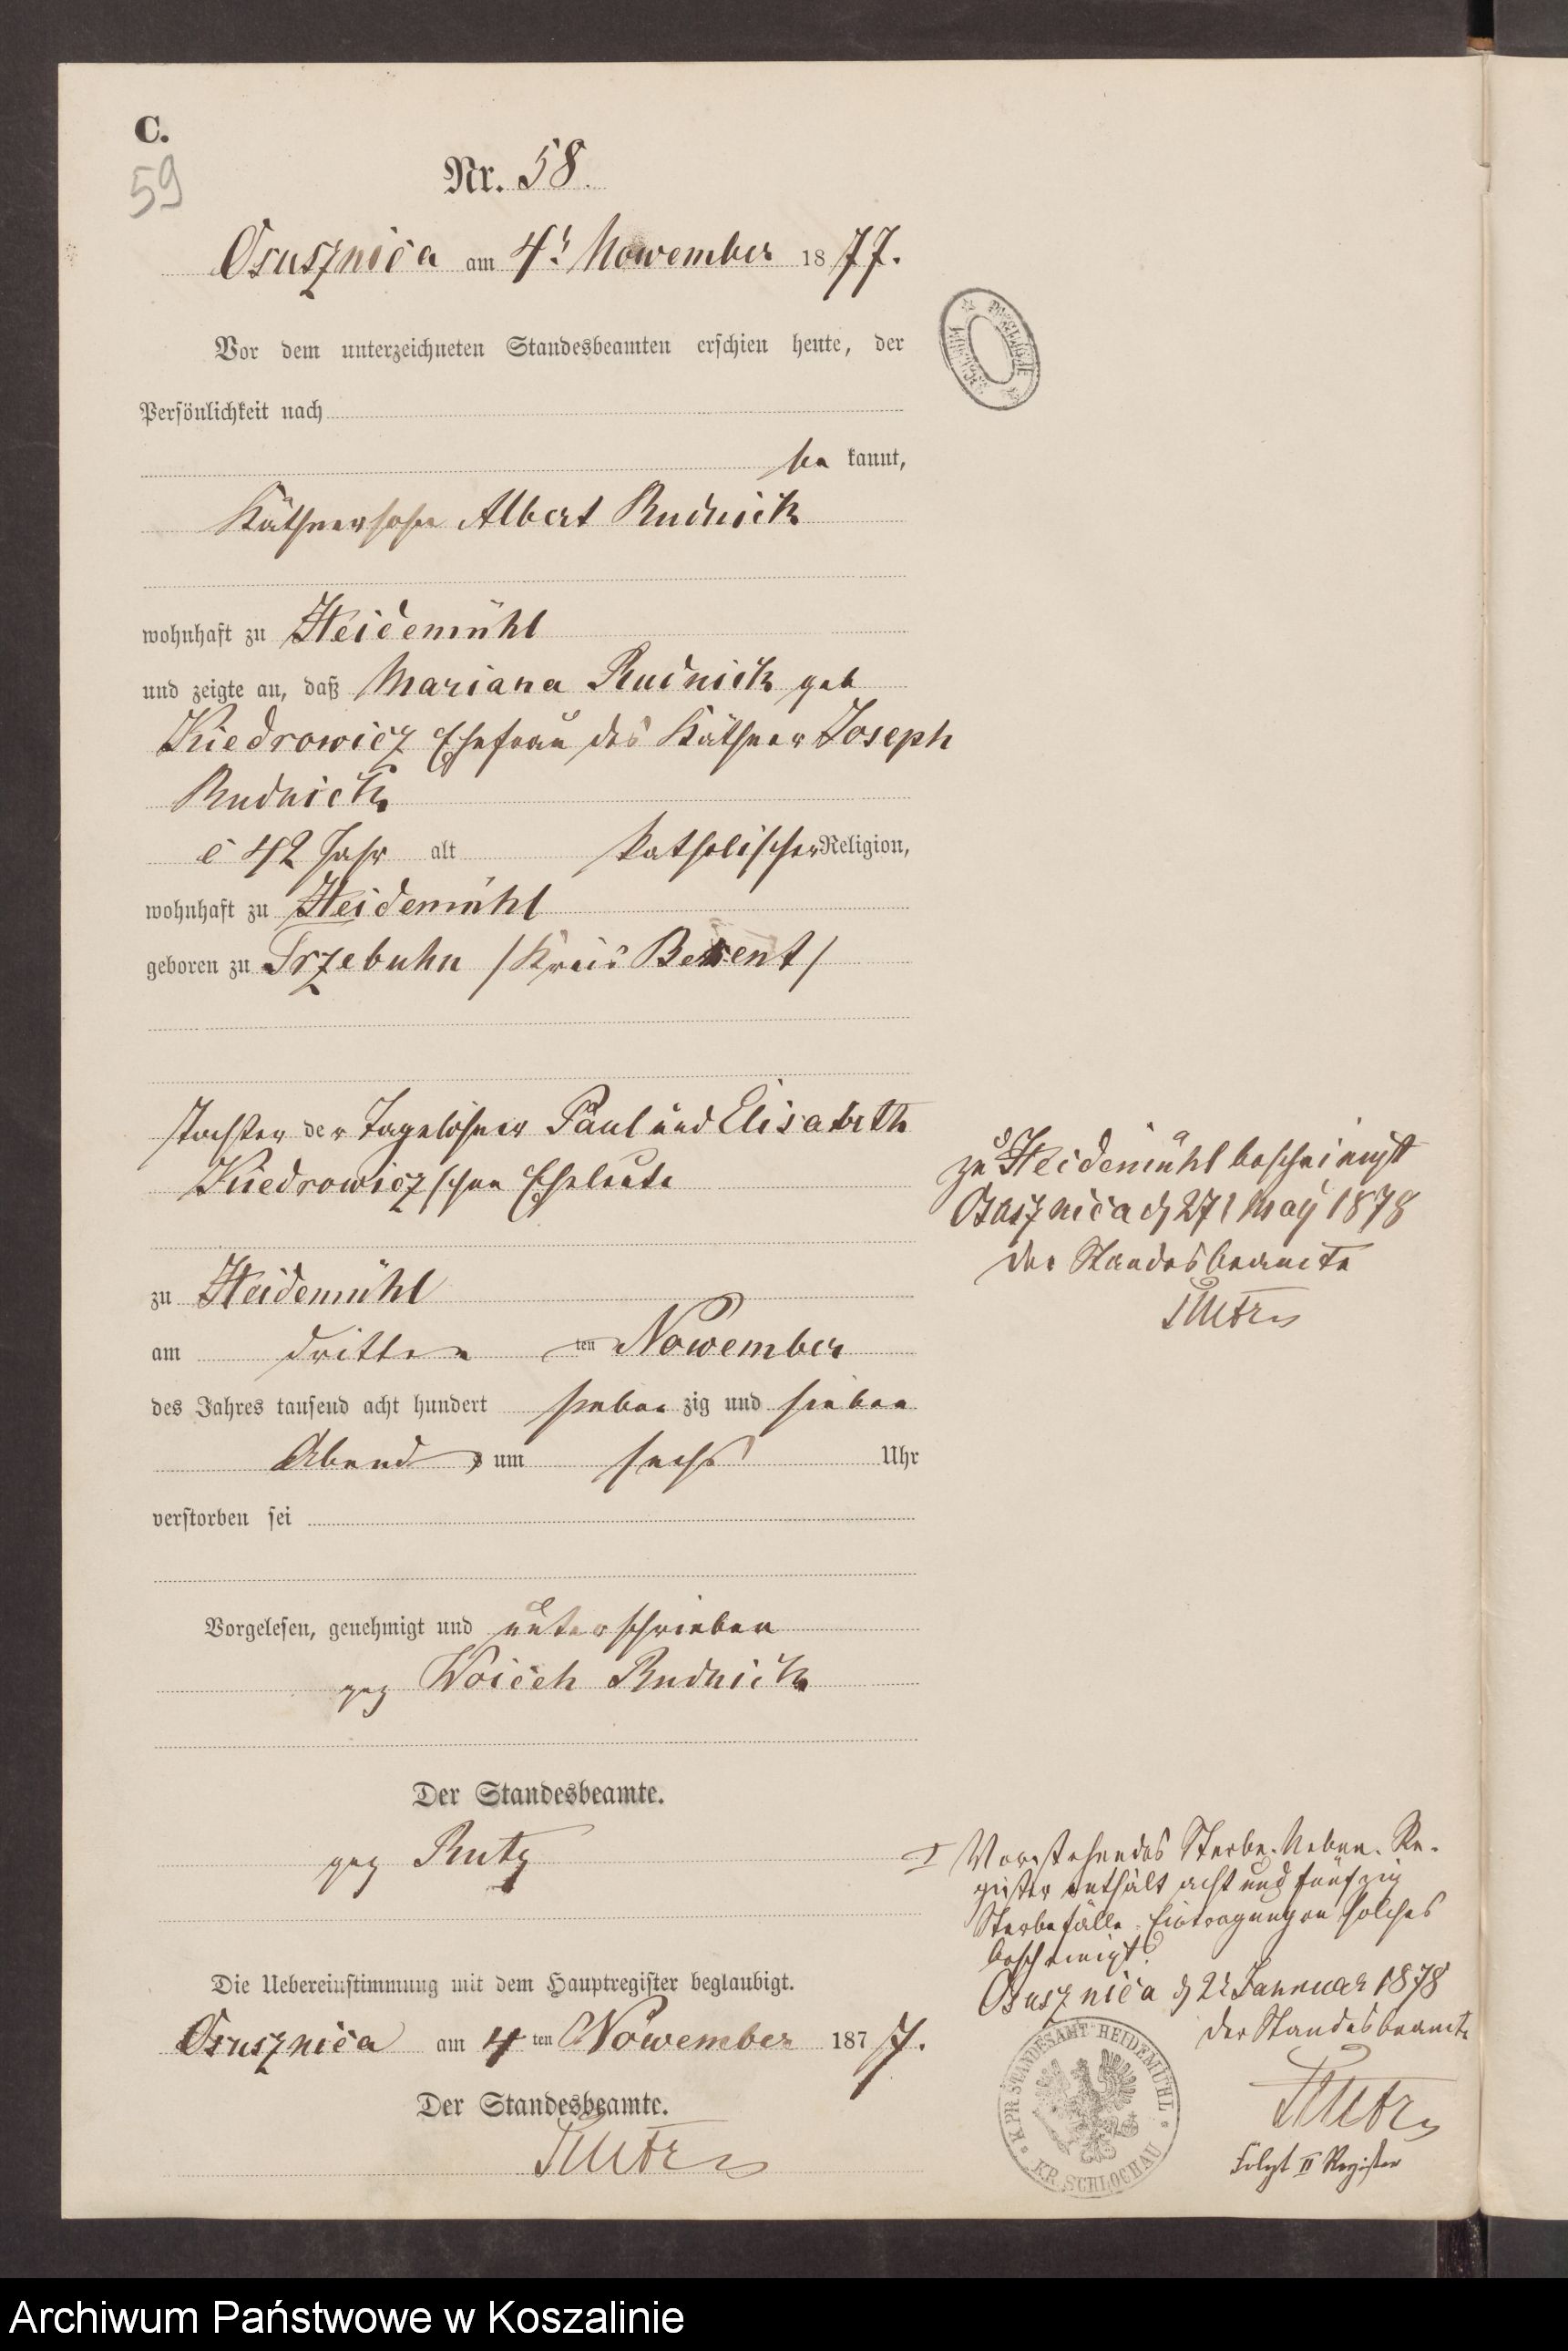 C.
59
Nr. 58.
Osusznica am 4t November 1877.
Vor dem unterzeichneten Standesbeamten erschien heute, der
Persönlichkeit nach
be kannt,
Käthnersohn Albert Rudnick
wohnhaft zu Heidemühl
und zeigte an, daß Mariana Rudnick geb
Kiedrowicz Ehefrau des Käthner Joseph
Rudnick
42 Jahr alt katholischer Religion,
wohnhaft zu Heidemühl
geboren zu Trzebuhn /Kreis Berent/
Tochter der Tagelöhner Paul und Elisabeth
Kiedrowicz schen Eheleute
zu Heidemühl
am dritten ten November
des Jahres tausend acht hundert sieben zig und sieben
Abends um sechs Uhr
verstorben sei
Vorgelesen, genehmigt und unterschrieben
gez Woicech Rudnick
Der Standesbeamte.
gez Rutz
Die Uebereinstimmung mit dem Hauptregister beglaubigt.
Osusznica am 4 ten November 1877.
Der Standesbeamte.
Rutz
zu Heidemühl bescheinigt
Osusznica d 27t May 1878
der Standesbeamte
Rutz
I Vorstehendes Sterbe-Neben-Re-
gister enthält acht und fünfzig
Sterbefälle Eintragungen solches
bescheinigt
Osusznica d 2t Januar 1878
der Standesbeamte
Rutz
Folgt II Register
K. PR. STANDESAMT HEIDEMÜHL
KR. SCHLOCHAU
Archiwum Państwowe w Koszalinie